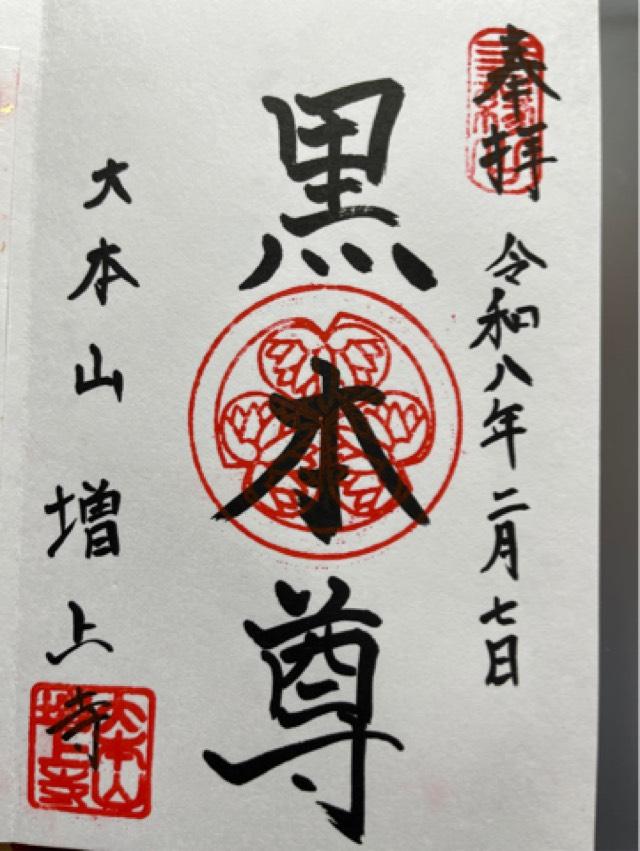 奉拝
令和八年二月七日
黒本尊
大本山
増上寺
大本山
増上寺